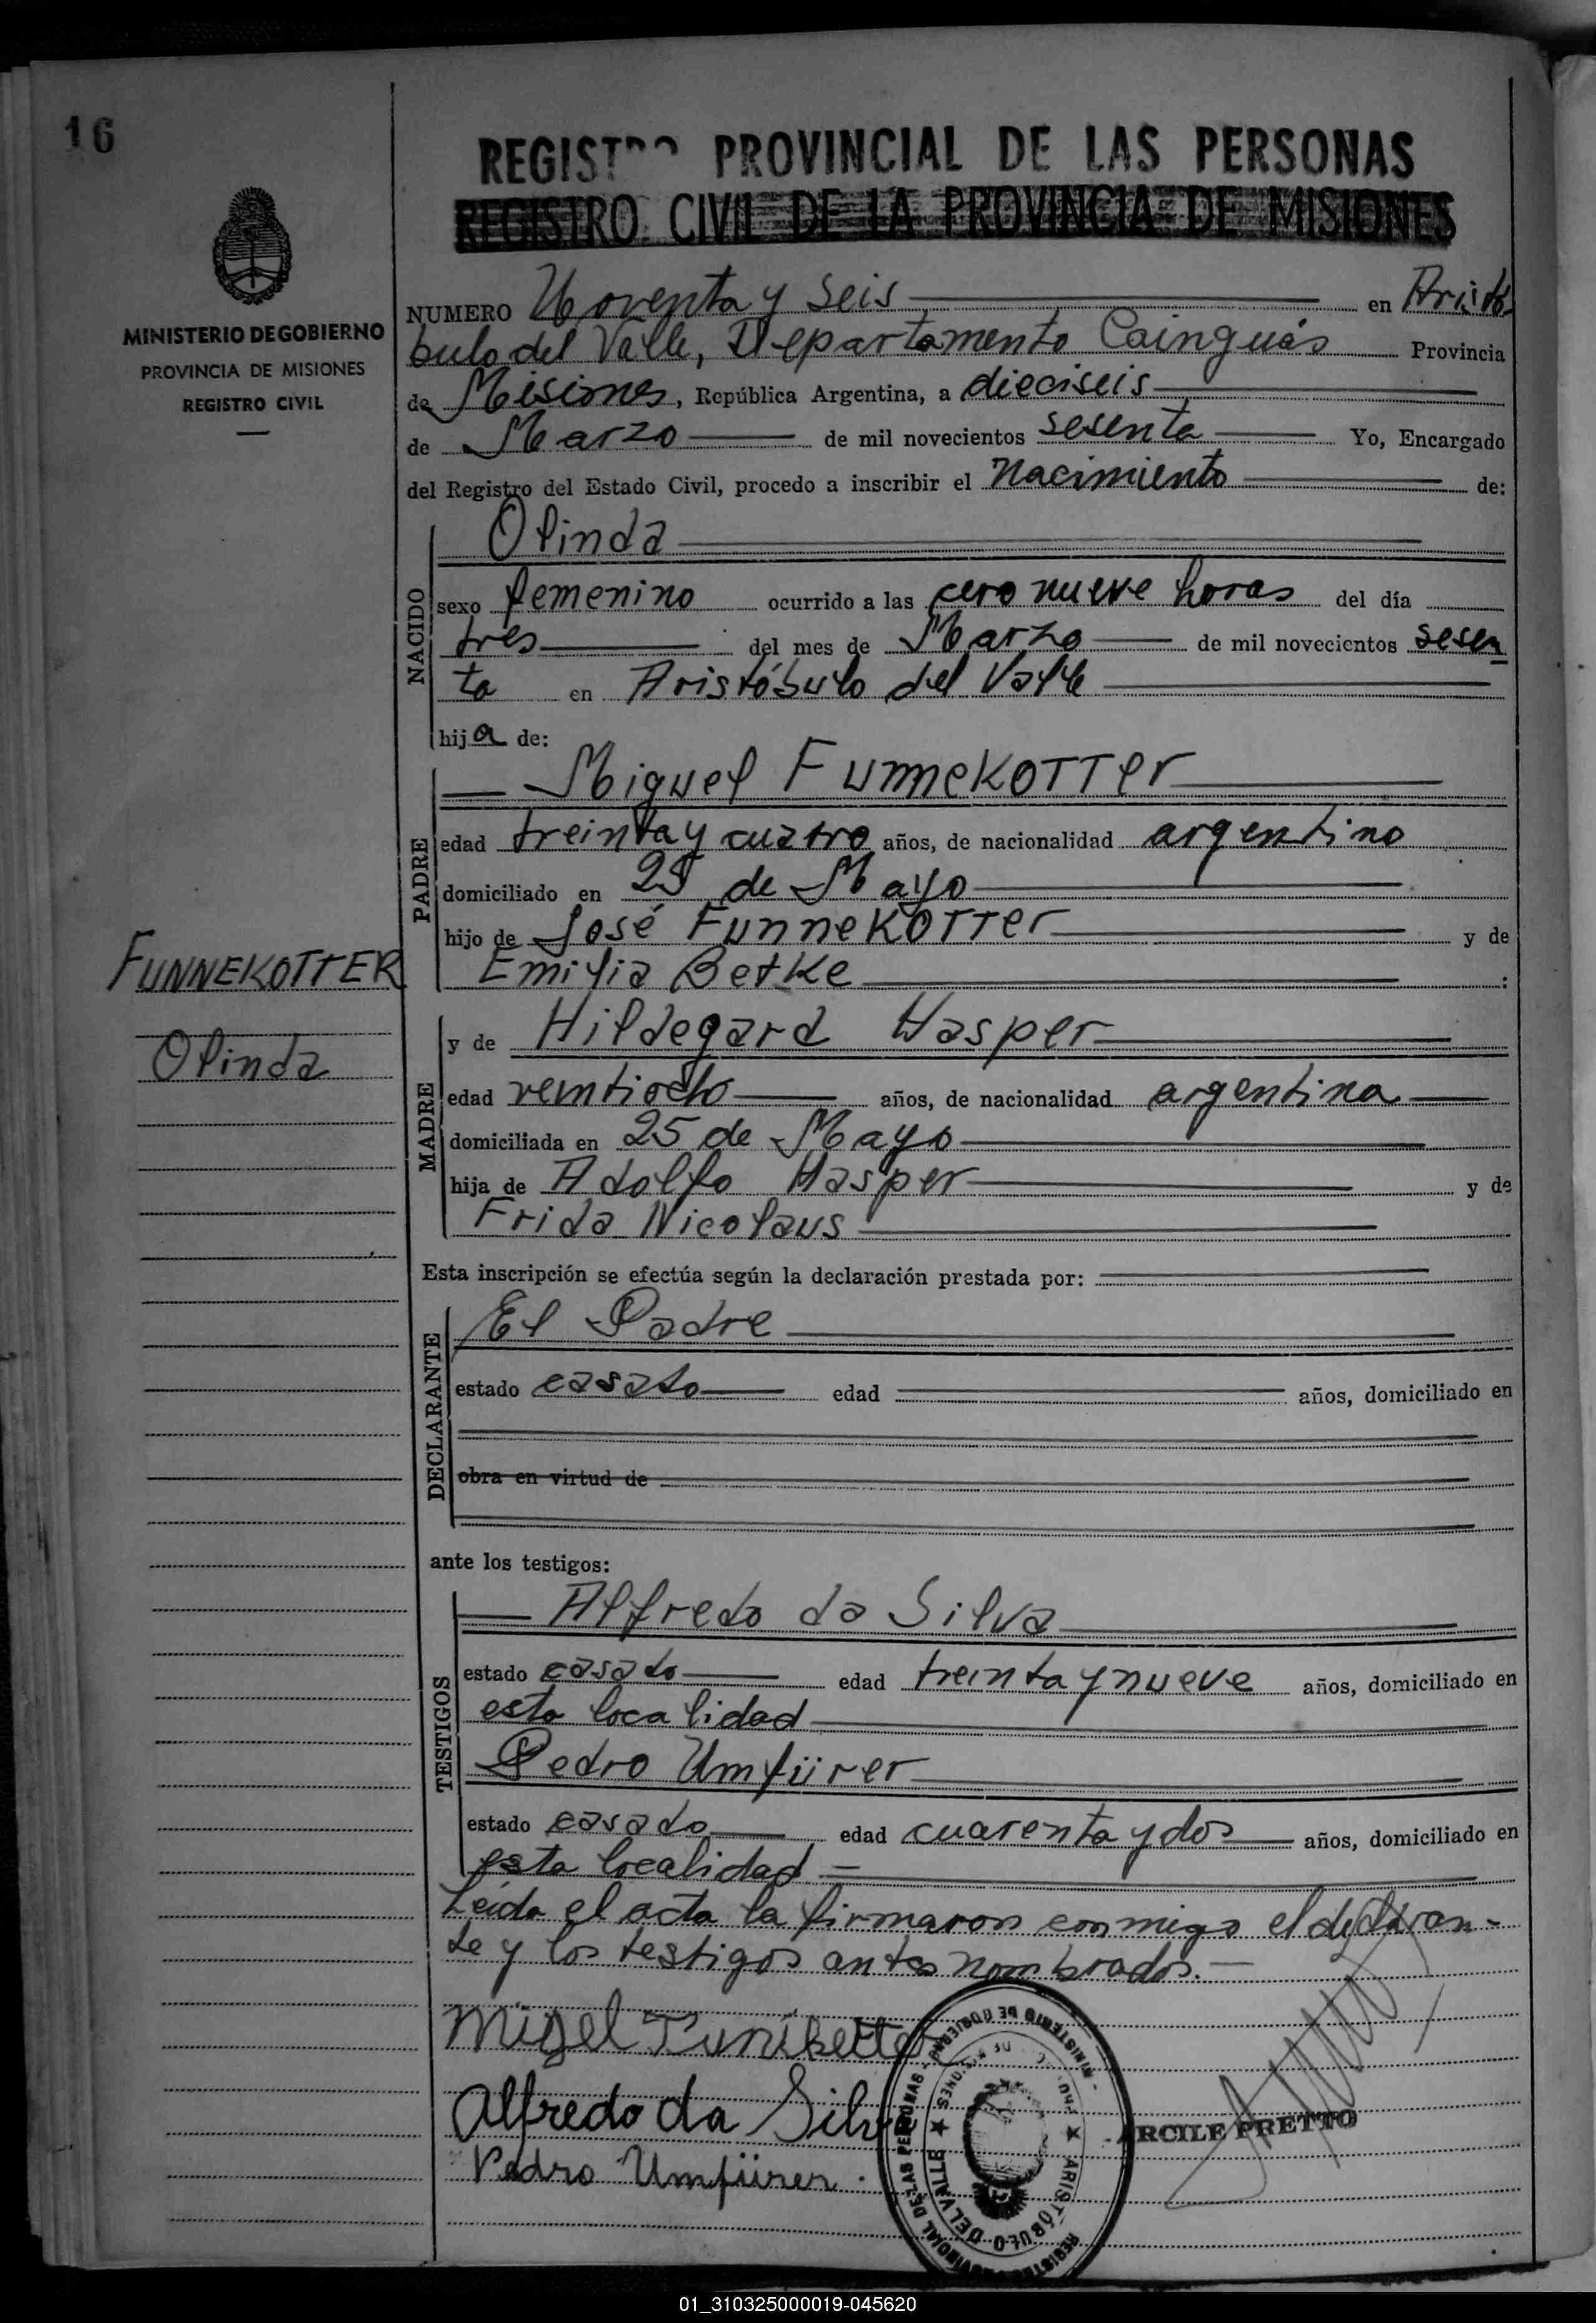 16
REGISTRO PROVINCIAL DE LAS PERSONAS
REGISTRO CIVIL DE LA PROVINCIA DE MISIONES
MINISTERIO DE GOBIERNO
PROVINCIA DE MISIONES
REGISTRO CIVIL
NUMERO Noventa y seis en Aristó
bulo del Valle, Departamento Cainguás Provincia
de Misiones, República Argentina, a dieciseis
de Marzo de mil novecientos sesenta Yo, Encargado
del Registro del Estado Civil, procedo a inscribir el Nacimiento de:
NACIDO
Olinda
sexo femenino ocurrido a las cero nueve horas del día
tres del mes de Marzo de mil novecientos sesen
ta en Aristóbulo del Valle
hija de:
PADRE
Miguel Funnekotter
edad treinta y cuatro años, de nacionalidad argentino
domiciliado en 25 de Mayo
hijo de José Funnekotter y de
Emilia Betke
FUNNEKOTTER
Olinda
MADRE
y de Hildegard Hasper
edad veintiocho años, de nacionalidad argentina
domiciliada en 25 de Mayo
hija de Adolfo Hasper y de
Frida Nicolaus
Esta inscripción se efectúa según la declaración prestada por:
DECLARANTE
El Padre
estado casado edad años, domiciliado en
obra en virtud de
ante los testigos:
TESTIGOS
Alfredo da Silva
estado casado edad treinta y nueve años, domiciliado en
esta localidad
Pedro Umfürer
estado casado edad cuarenta y dos años, domiciliado en
esta localidad
Leída el acta la firmaron conmigo el declaran-
te y los testigos antes nombrados.
Migel
Alfredo da Silva
Pedro Umfürer
ARCILE PRETTO
MINISTERIO DE GOBIERNO
REGISTRO PROVINCIAL DE LAS PERSONAS
ARISTÓBULO DEL VALLE
01_310325000019-045620